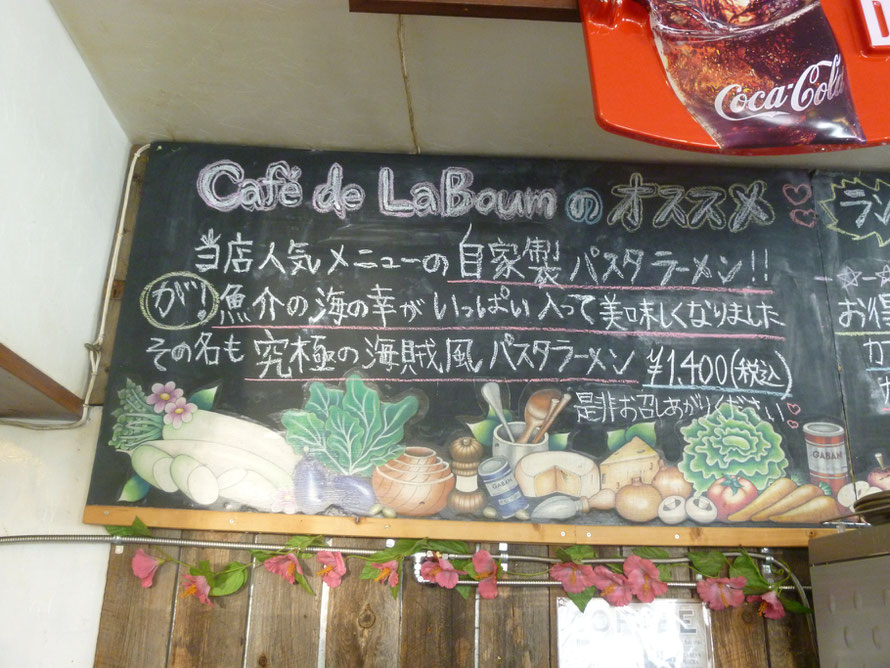 Coca-Cola
Café de LaBoumのオススメ
当店人気メニューの自家製パスタラーメン!!
が!魚介の海の幸がいっぱい入って美味しくなりました
その名も究極の海賊風パスタラーメン ¥1.400(税込)
是非お召しあがりください
ラン
お得
GABAN
GABAN